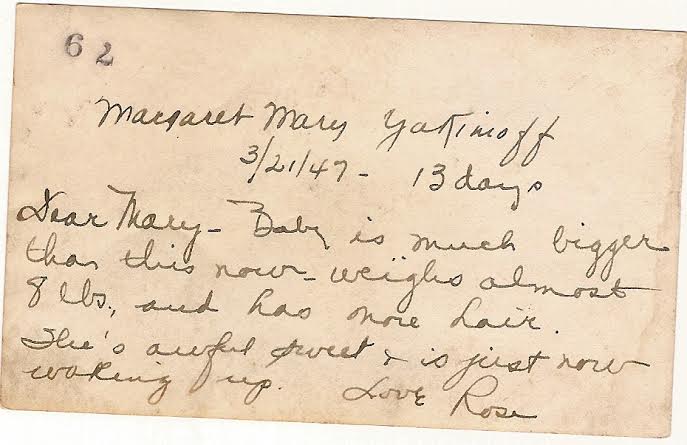 62
Margaret Mary Yakimoff
3/21/47 - 13 days
Dear Mary - Baby is much bigger
than this now - weighs almost
8 lbs., and has more hair.
She's awful sweet & is just now
waking up. Love Rose